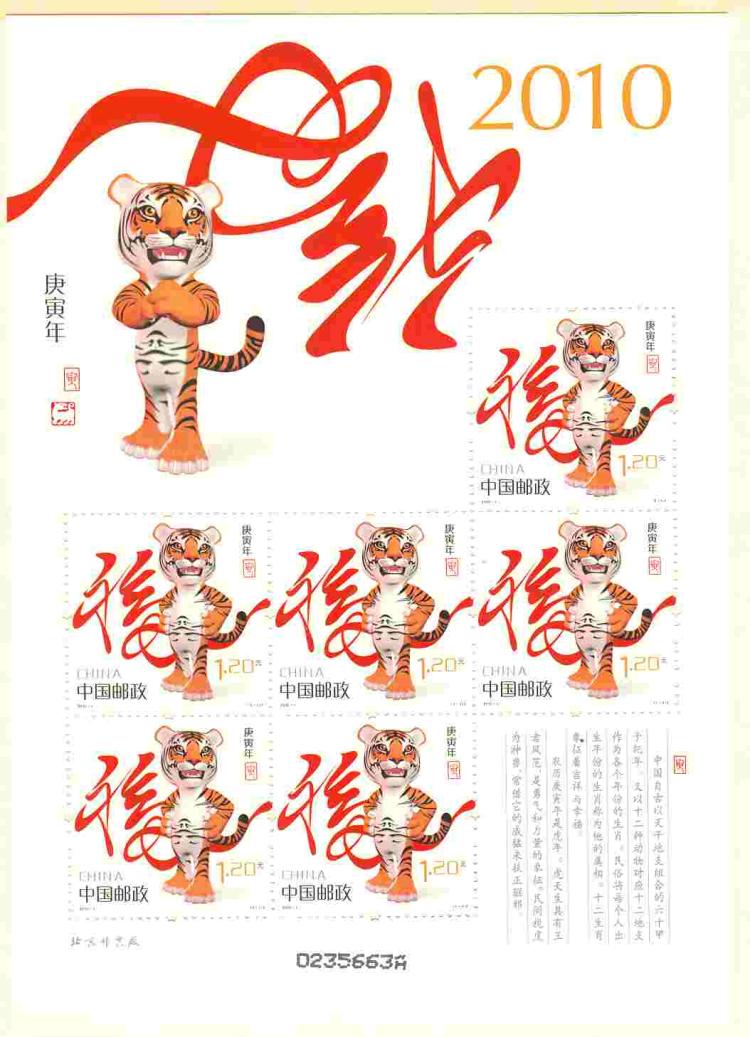 2010
庚寅年
寅
福
庚寅年
寅
CHINA
1.20元
中国邮政
福
庚寅年
寅
CHINA
1.20元
中国邮政
福
庚寅年
寅
CHINA
1.20元
中国邮政
福
庚寅年
寅
CHINA
1.20元
中国邮政
福
庚寅年
寅
CHINA
1.20元
中国邮政
福
庚寅年
寅
CHINA
1.20元
中国邮政
寅
中国自古以天干地支组合的六十甲
子纪年。又以十二种动物对应十二地支
作为各个年份的生肖。民俗将每个人出
生年份的生肖称为他的属相。十二生肖
象征着吉祥与幸福。
农历庚寅年是虎年。虎天生具有王
者风范,是勇气和力量的象征。民间视虎
为神兽,常借它的威猛来扶正驱邪。
北京邮票厂
0235663A